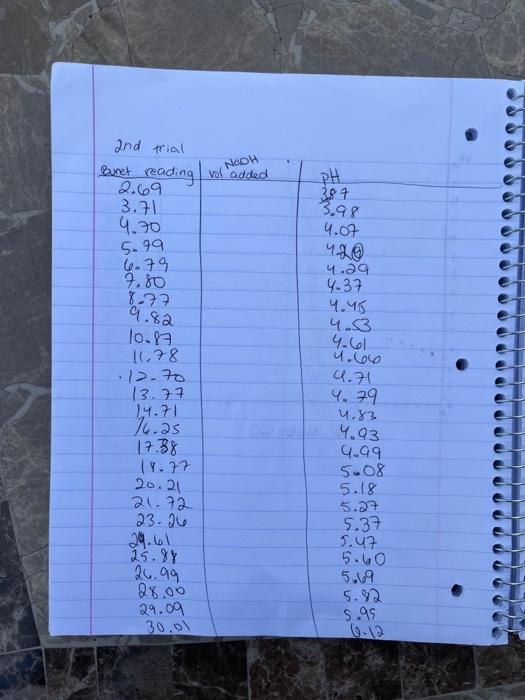 2nd trial
Buret reading NaOH vol added pH
2.69 3.87
3.71 3.98
4.70 4.07
5.79
6.79 4.29
7.80 4.37
8.77 4.45
9.82 4.53
10.87 4.61
11.78 4.66
12.70 4.71
13.77 4.79
14.71 4.83
16.25 4.93
17.38 4.99
18.77 5.08
20.21 5.18
21.72 5.27
23.26 5.37
24.61 5.47
25.88 5.60
26.99 5.69
28.00 5.82
29.09 5.95
30.01 6.12